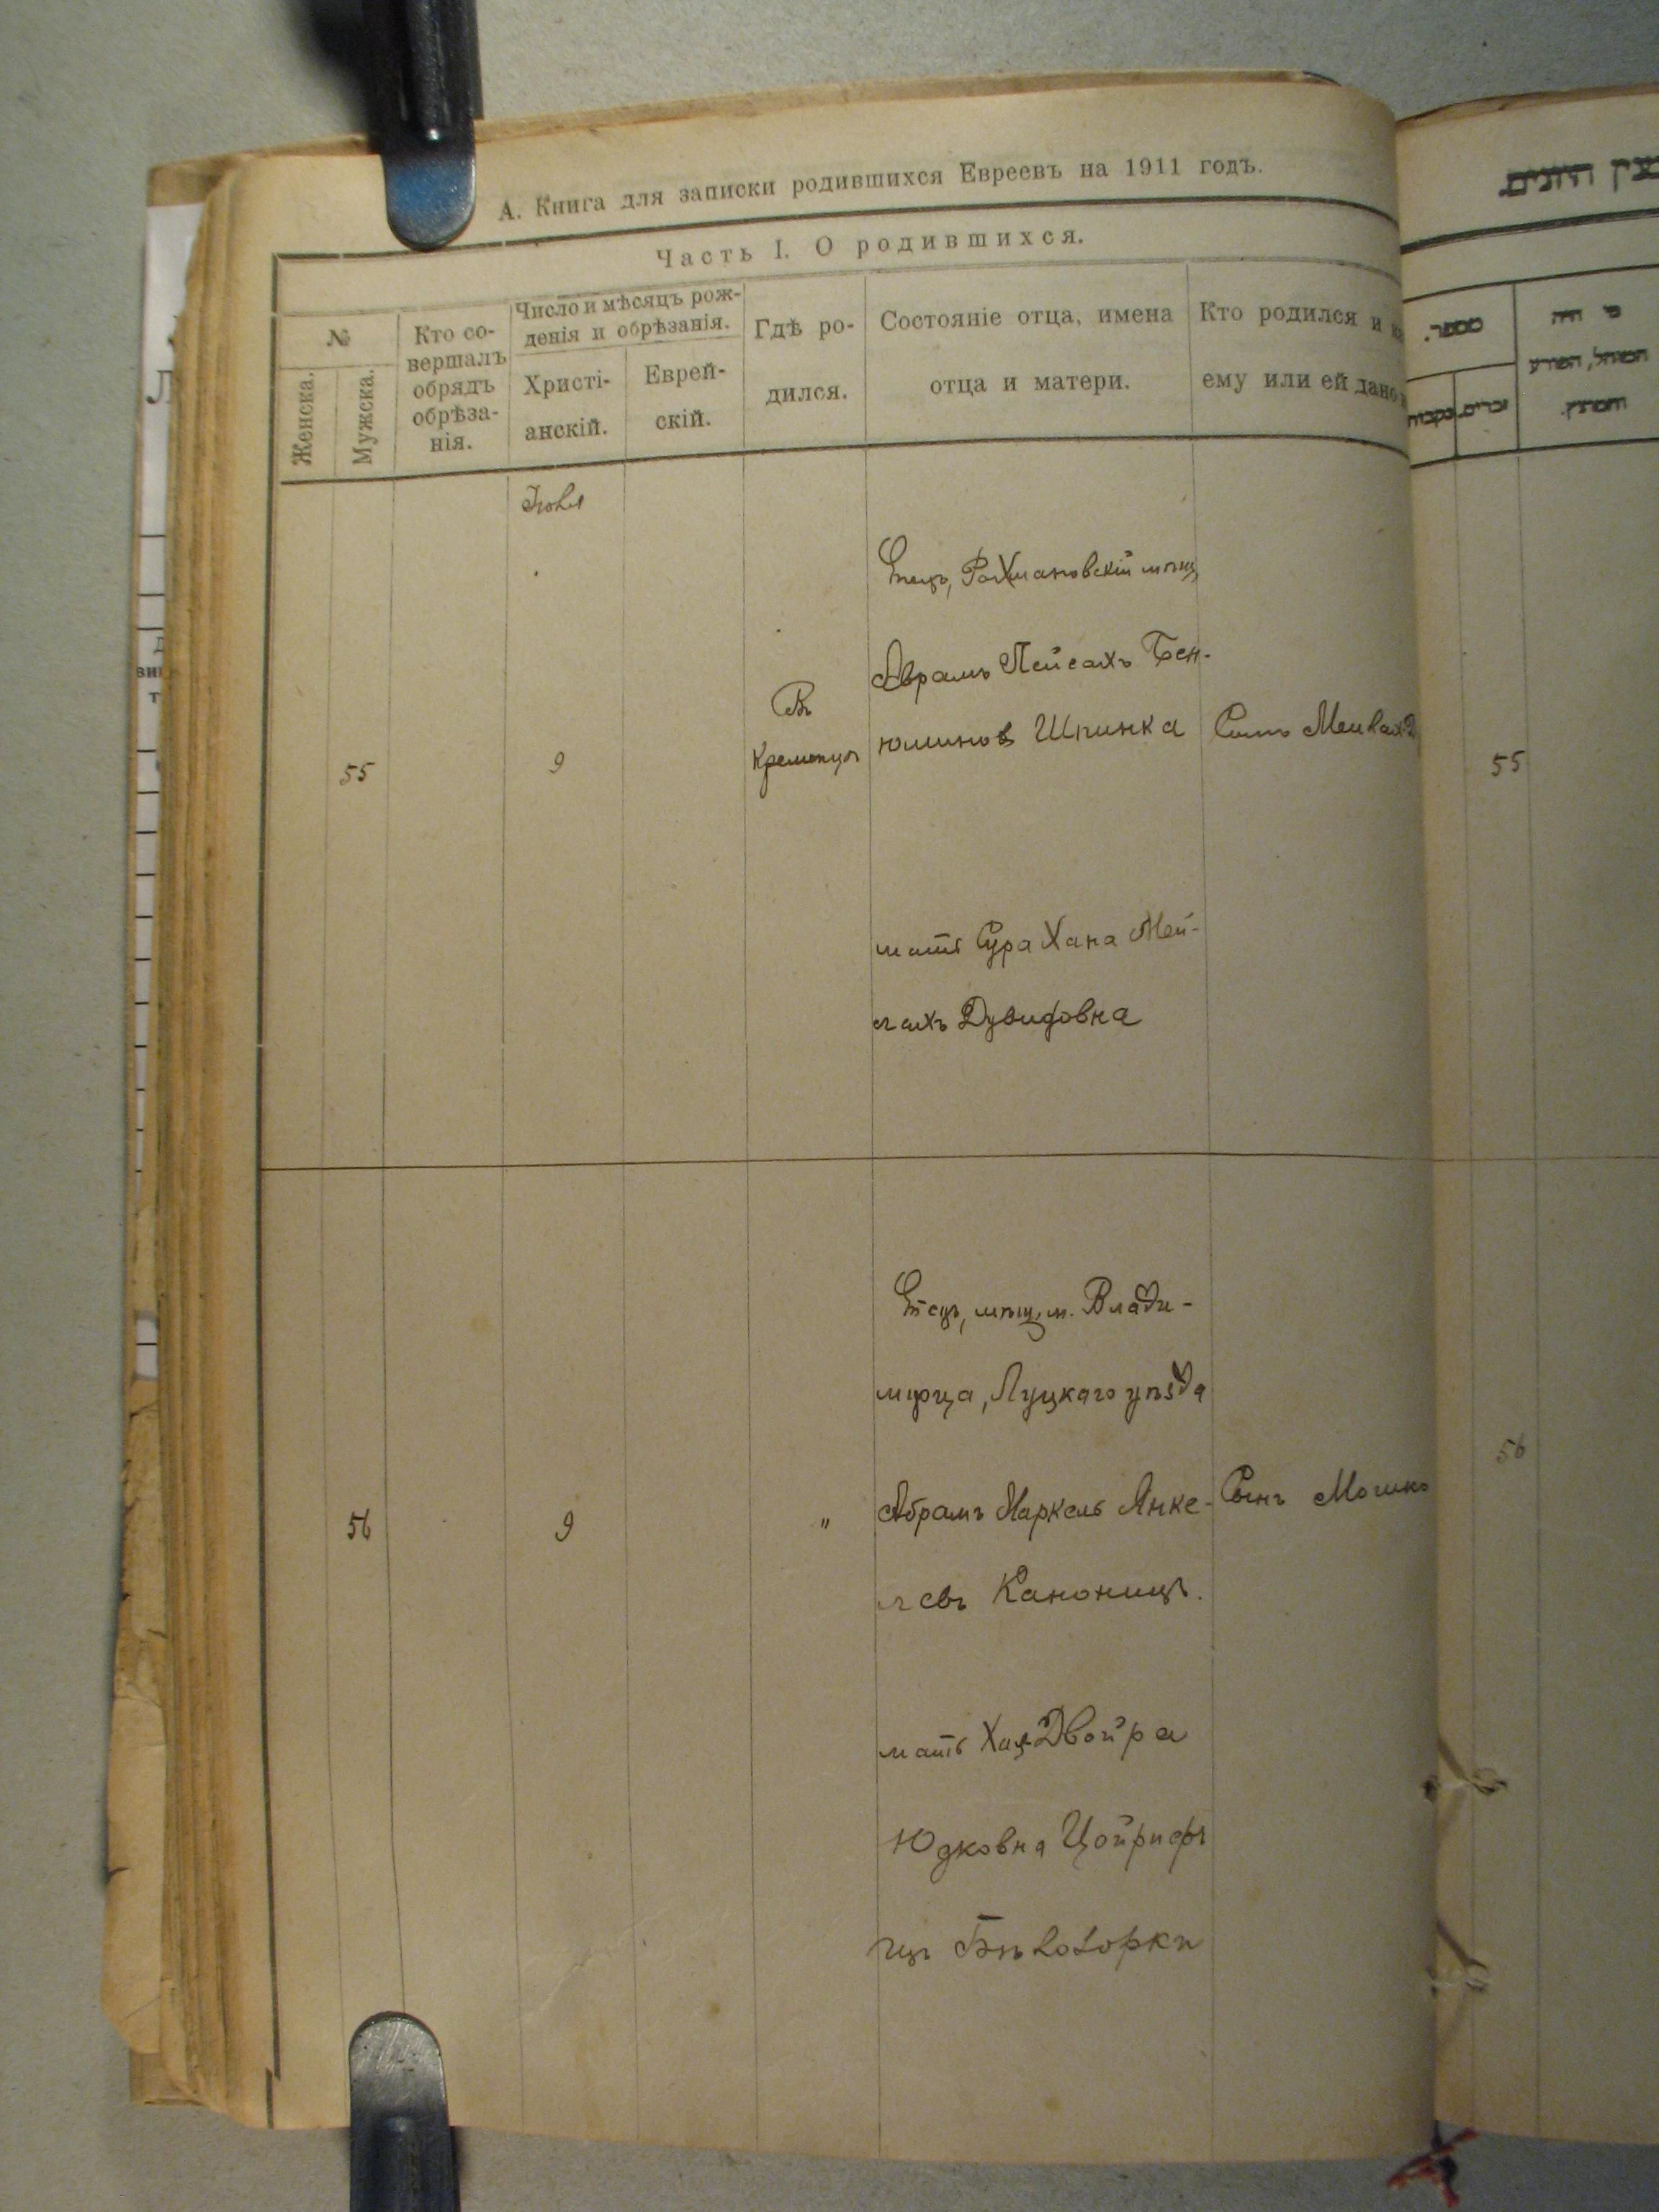 А. Книга для записки родившихся Евреевъ на 1911 годъ.
Часть I. О родившихся.
№
Женска.
Мужска.
Кто со-
вершалъ
обрядъ
обрѣза-
нія.
Число и мѣсяцъ рож-
денія и обрѣзанія.
Христі-
анскій.
Еврей-
скій.
Гдѣ ро-
дился.
Состояніе отца, имена
отца и матери.
Кто родился и
ему или ей дано
Іюля
55
9
Въ
Кременцѣ
Отецъ, Рахмановскій мѣщ,
Аврамъ Пейсахъ Бен-
юминовъ Шпинка
мать Сура Хана Мей-
лахъ Дувидовна
Сынъ
56
9
"
Отецъ, мѣщ. м. Влади-
мірца, Луцкаго уѣзда
Абрамъ Маркель Янке-
левъ Каноницъ.
мать Хая Двойра
Юдковна Цойрифъ
изъ Бѣлозорки
Сынъ Мошко
מספר.
נקבות
זכרים.
מי היה
המוהל, הפורע
והמוצץ.
55
56